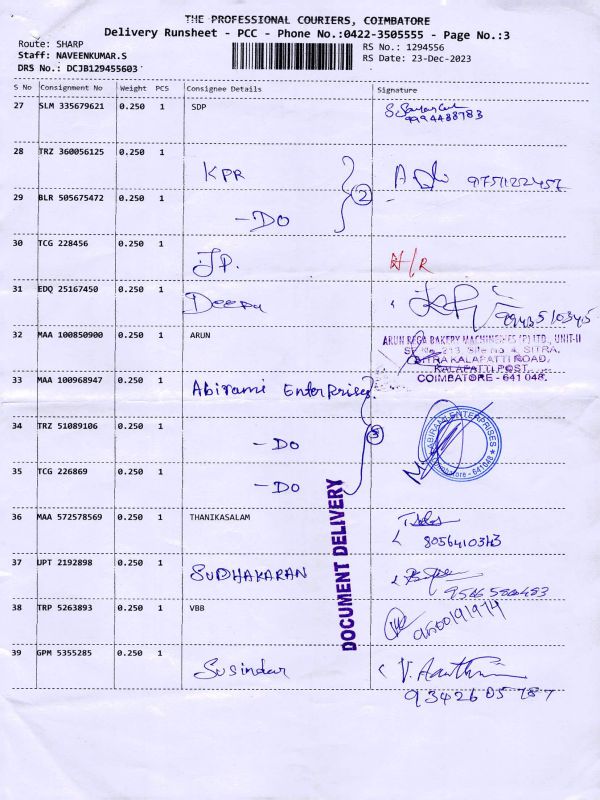 THE PROFESSIONAL COURIERS, COIMBATORE
Delivery Runsheet - PCC - Phone No.:0422-3505555 - Page No.:3
Route: SHARP
RS No.: 1294556
Staff: NAVEENKUMAR.S
RS Date: 23-Dec-2023
DRS No.: DCJB129455603
S No Consignment No Weight PCS Consignee Details Signature
27 SLM 335679621 0.250 1 SDP
9994488783
28 TRZ 360056125 0.250 1 KPR
9751122457
29 BLR 505675472 0.250 1 - DO
2
30 TCG 228456 0.250 1 J.P. N/R
31 EDQ 25167450 0.250 1 Deepu
32 MAA 100850900 0.250 1 ARUN
ARUN REGA BAKERY MACHINERIES (P) LTD., UNIT-II
SF No. 213, Site No. 4, SITRA,
SITRA KALAPATTI ROAD,
KALAPATTI POST,
COIMBATORE - 641 048.
33 MAA 100968947 0.250 1 Abirami Enterprises.
34 TRZ 51089106 0.250 1 - DO
3
ABIRAMI ENTERPRISES
Coimbatore - 641048
35 TCG 226869 0.250 1 - DO
DOCUMENT DELIVERY
36 MAA 572578569 0.250 1 THANIKASALAM
37 UPT 2192898 0.250 1 SUDHAKARAN
38 TRP 5263893 0.250 1 VBB
9600191974
39 GPM 5355285 0.250 1 Susindar
93426 05 787